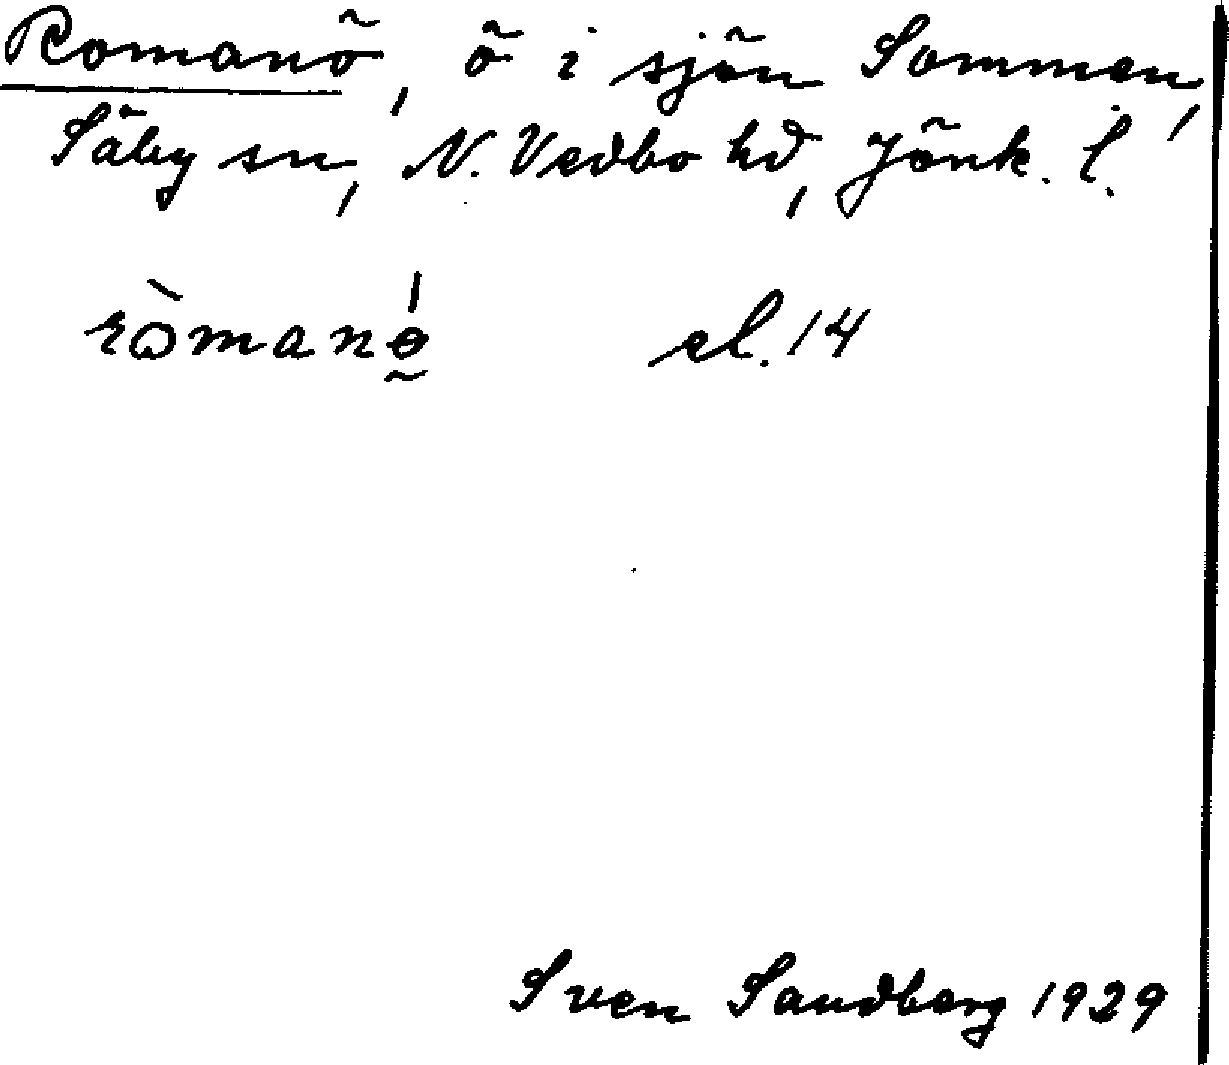 Romanö, ö i sjön Sommen,
Säby sn, N. Vedbo hd, Jönk. l.
ròmanǿ el. 14
Sven Sandberg 1929